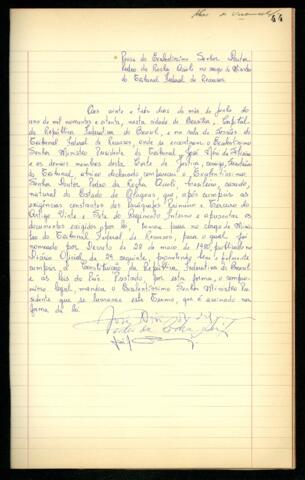 44
Posse do Excelentíssimo Senhor Doutor
Pedro da Rocha Acioli no cargo de Ministro
do Tribunal Federal de Recursos.
Aos vinte e três dias do mês de junho do
ano de mil novecentos e oitenta, nesta cidade de Brasília, Capital
da República Federativa do Brasil, e na sala de Sessões do
Tribunal Federal de Recursos, onde se encontravam o Excelentíssimo
Senhor Ministro Presidente do Tribunal, José Néri da Silveira
e os demais membros desta Corte de Justiça, comigo, Secretário
do Tribunal, abaixo declarado, compareceu o Excelentíssimo
Senhor Doutor Pedro da Rocha Acioli, brasileiro, casado,
natural do Estado de Alagoas que, após cumprir as
exigências constantes dos Parágrafos Primeiro e Terceiro do
Artigo Vinte e Sete do Regimento Interno e apresentar os
documentos exigidos por lei, tomou posse no cargo de Minis-
tro do Tribunal Federal de Recursos, para o qual foi
nomeado por Decreto de 28 de maio de 1980, publicado no
Diário Oficial de 29 seguinte, prometendo bem e fielmente
cumprir a Constituição da República Federativa do Brasil
e as leis do País. Prestado, por esta forma, o compro-
misso legal, mandou o Excelentíssimo Senhor Ministro Pre-
sidente que se lavrasse este Termo, que é assinado na
forma da lei.